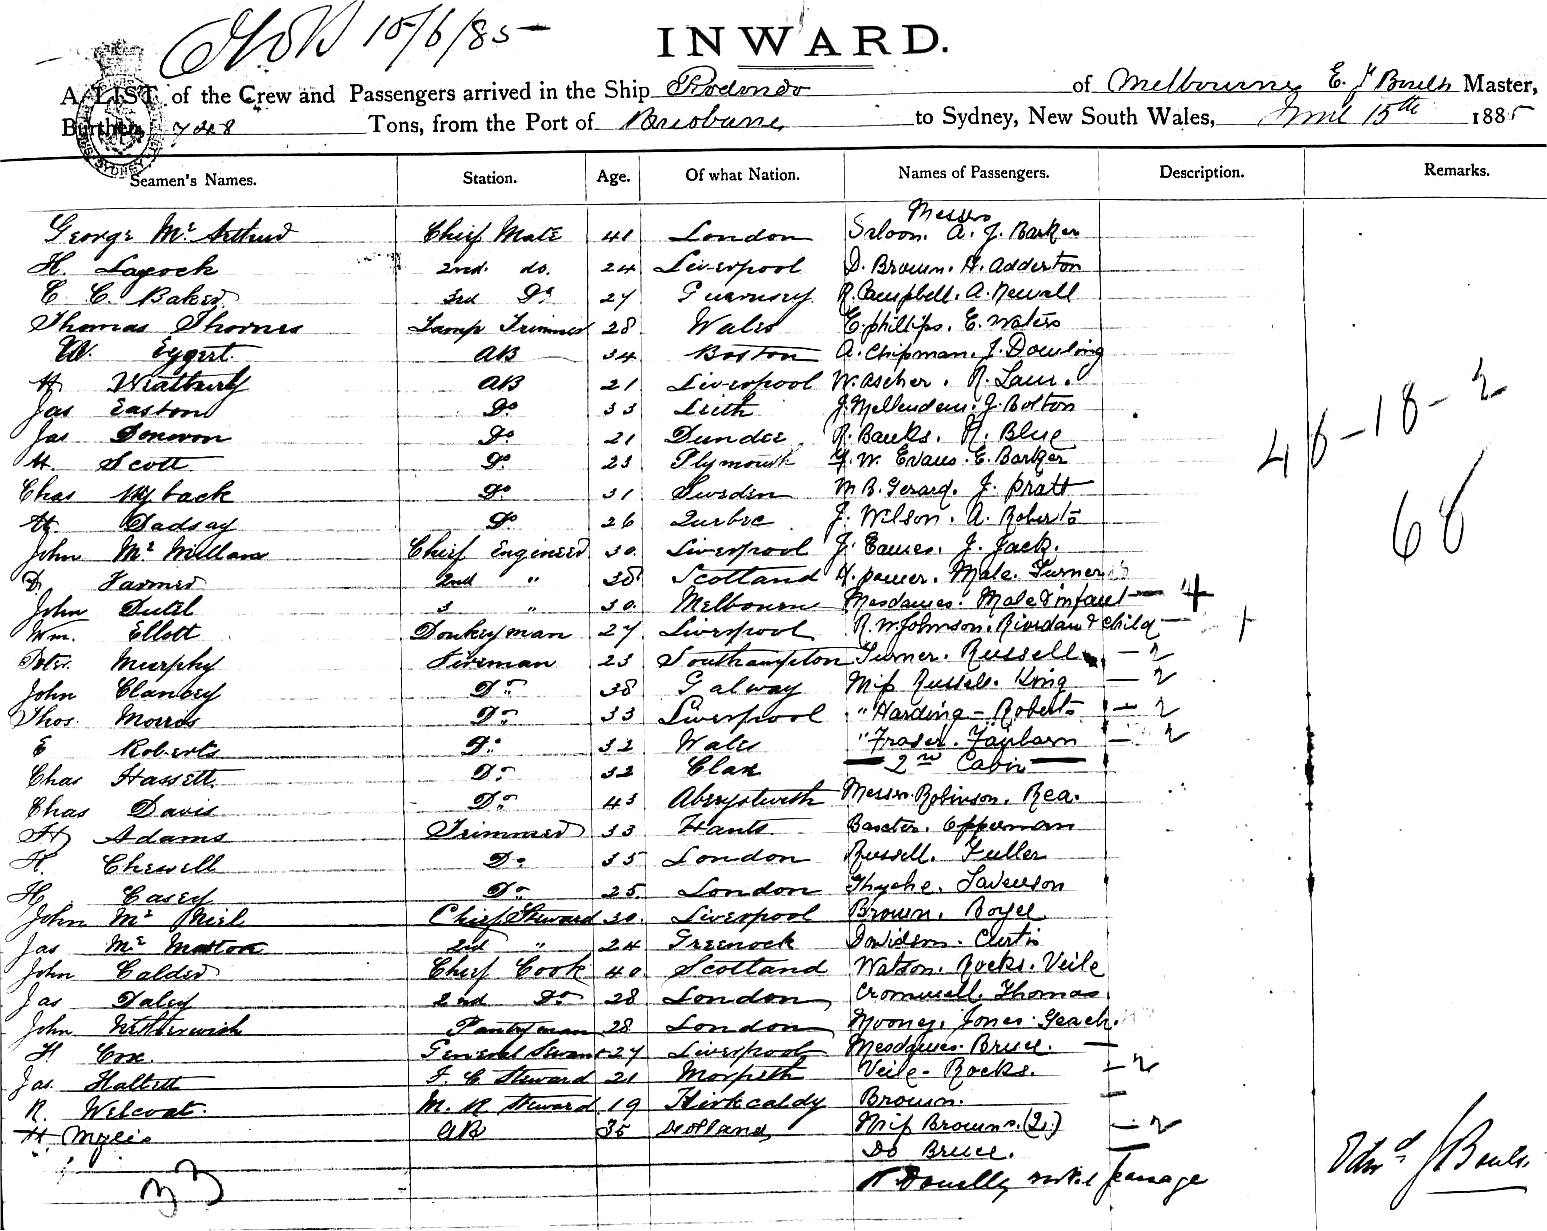 15/6/85
INWARD.
A LIST of the Crew and Passengers arrived in the Ship Rodondo of Melbourne E. J Boult Master,
Burthen 728 Tons, from the Port of Brisbane to Sydney, New South Wales, June 15th 1885
Seamen's Names. Station. Age. Of what Nation. Names of Passengers. Description. Remarks.
Messrs
George Mc Arthur Chief Mate 41 London Saloon. A. J. Barker
H. Laycock 2nd. do. 24 Liverpool D. Brown. H. Adderton
C C Baker 3rd Do 27 Guernsey R. Campbell. A. Newall
Thomas Thornes Lamp Trimmer 28 Wales E. phillips. E. Waters
W. Eggert. AB 34 Boston A. Chipman. J. Dowling
H Weatherly AB 21 Liverpool W. Ascher. R. Law.
Jas Easton Do 33 Leith J. Mellendew. J. Bolton
Jas Donovon Do 21 Dundee R. Banks. R. Blue
H. Scott Do 23 Plymouth G. W. Evans. E. Barker
Chas Nyback Do 31 Sweden M B. Gerard. J. Pratt
H Dadsay Do 26 Quebec J. Wilson. A. Roberts
John Mc Millan Chief Engineer 30. Liverpool J. Eames. J. Jack.
D Farmer 2nd " 38 Scotland H. power. Male. Turner
John 3 " 30. Melbourne Mesdames. Male & infant — 4
Wm. Ellott Donkeyman 27 Liverpool R. W. Johnson. Riordan & child —
Peter. Murphy Fireman 23 Southampton Turner. Russell — 2
John Clancey Do 38 Galway Miss Russell. King — 2
Thos. Morris Do 33 Liverpool " Harding - Roberts — 2
E Roberts Do 32 Wales " Fraser. Fairbarn — 2
Chas Hassett Do 32 Clare — 2nd Cabin —
Chas Davis Do 43 Aberystwith Messrs. Robinson. Rea.
H Adams Trimmer 33 Hants Baxter. Opperman
H. Chewell Do 35 London Russell. Fuller
H Casey Do 25. London Thyche.
John Mc Niel Chief Steward 30. Liverpool Brown. Boyce
Jas Mc 2nd " 24 Greenock Davidson. Curtis
John Calder Chief Cook 40 Scotland Watson. Rocks. Veile
Jas Daley 2nd Do 28 London Cromwell. Thomas
John Witherwick Pantryman 28 London Mooney. Jones. Geach.
H Cox. General Servant 27 Liverpool Mesdames. Bruce. —
Jas. Hallett F. C Steward 21 Morpeth Veile - Rocks. — 2
R. Welcoat. M. R Steward 19 Kirkcaldy Brown. —
H. Myles AB 35 Scotland Miss Browns. (2.) — 2
Do Bruce. —
Donelly passage
33
46 - 18 - 2
68
Edwd J Boult